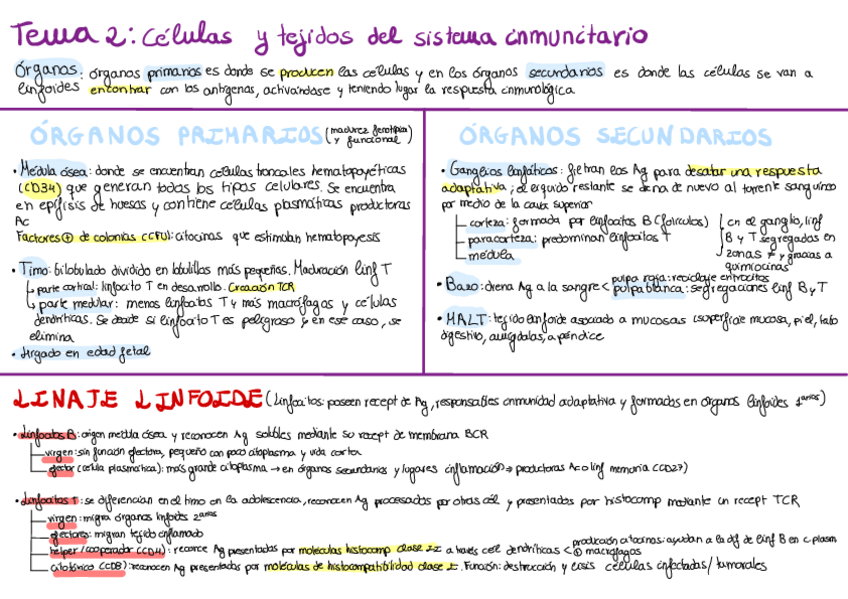 Tema 2: Células y tejidos del sistema inmunitario
Órganos: órganos primarios es donde se producen las células y en los órganos secundarios es donde las células se van a
linfoides encontrar con los antígenos, activándose y teniendo lugar la respuesta inmunológica
ÓRGANOS PRIMARIOS (madurez fenotípica y funcional)
• Médula ósea: donde se encuentran células troncales hematopoyéticas
(CD34) que generan todos los tipos celulares. Se encuentra
en epífisis de huesos y contiene células plasmáticas productoras
Ac
Factores ⊕ de colonias (CFU): citocinas que estimulan hematopoyesis
• Timo: bilobulado dividido en lobulillos más pequeños. Maduración linf T
parte cortical: linfocito T en desarrollo. Creación TCR
parte medular: menos linfocitos T y más macrófagos y células
dendríticas. Se decide si linfocito T es peligroso y en ese caso, se
elimina
• Hígado en edad fetal
ÓRGANOS SECUNDARIOS
• Ganglios linfáticos: filtran los Ag para desatar una respuesta
adaptativa; el líquido restante se drena de nuevo al torrente sanguíneo
por medio de la cava superior
corteza: formada por linfocitos B (folículos)
paracorteza: predominan linfocitos T
médula
en el ganglio, linf
B y T segregados en
zonas ≠ y gracias a
quimiocinas
• Bazo: drena Ag a la sangre < pulpa roja: reciclaje eritrocitos
pulpa blanca: segregaciones linf B y T
• MALT: tejido linfoide asociado a mucosas (superficie mucosa, piel, tubo
digestivo, amígdalas, apéndice
LINAJE LINFOIDE (Linfocitos: poseen recept de Ag, responsables inmunidad adaptativa y formados en órganos linfoides 1arios)
• Linfocitos B: origen médula ósea y reconocen Ag solubles mediante su recept de membrana BCR
virgen: sin función efectora, pequeño con poco citoplasma y vida corta
efector (célula plasmática): más grande citoplasma → en órganos secundarios y lugares inflamación → productoras Ac o linf memoria (CD27)
• Linfocitos T: se diferencian en el timo en la adolescencia, reconocen Ag procesados por otras cél y presentados por histocomp mediante un recept TCR
virgen: migra órganos linfoides 2arios
efectores: migran tejido inflamado
helper/cooperador (CD4): reconoce Ag presentados por moléculas histocomp clase II a través cél dendríticas < producción citocinas: ayudan a la dif de linf B en c.plasm
⊕ macrófagos
citotóxico (CD8): reconocen Ag presentados por moléculas de histocompatibilidad clase I. Función: destrucción y lisis células infectadas/tumorales